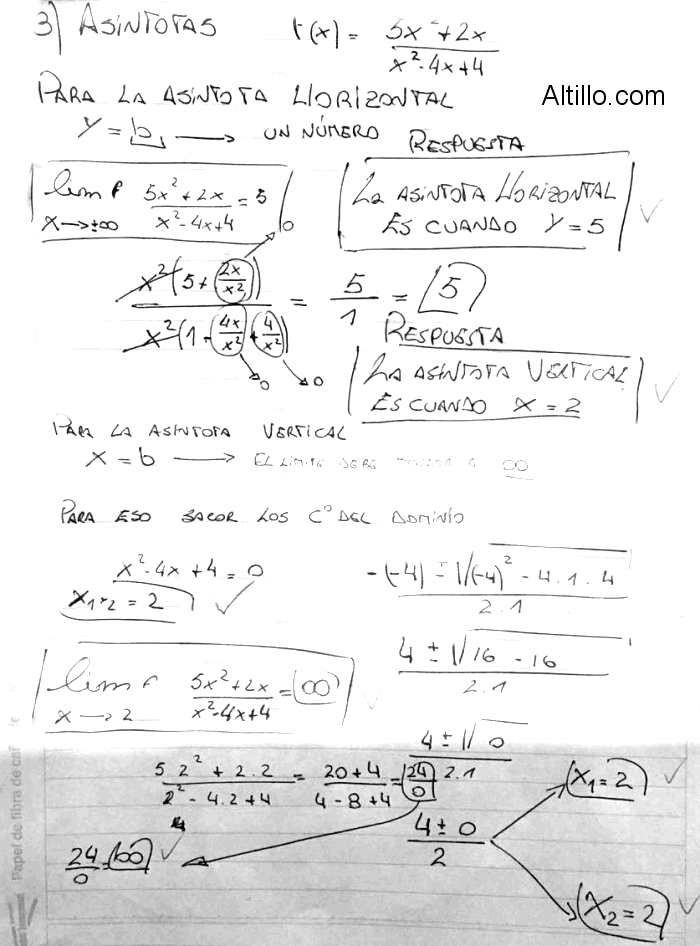 3) ASÍNTOTAS f(x) = 5x²+2x / x²-4x+4
Altillo.com
PARA LA ASÍNTOTA HORIZONTAL
y = b → UN NÚMERO
RESPUESTA
lim f 5x²+2x / x²-4x+4 = 5
x→±∞
LA ASÍNTOTA HORIZONTAL
ES CUANDO Y = 5 ✓
x²(5+ 2x/x²) → 0
x²(1 - 4x/x² + 4/x²) → 0 → 0
= 5/1 = 5
RESPUESTA
LA ASÍNTOTA VERTICAL
ES CUANDO X = 2 ✓
PARA LA ASÍNTOTA VERTICAL
X = b → EL LÍMITE DEBE A ∞
PARA ESO SACAR LOS C° DEL DOMINIO
x²-4x+4=0
x1y2 = 2 ✓
-(-4) ± √(-4)² - 4.1.4 / 2.1
4 ± √16 - 16 / 2.1
lim f 5x²+2x / x²-4x+4 = ∞
x→2
4 ± √0 / 2.1
5 2² + 2.2 / 2² - 4.2 + 4 = 20+4 / 4-8+4 = 24/0
4
24/0 = ∞ ✓
4 ± 0 / 2
x1 = 2 ✓
x2 = 2 ✓
Papel de fibra de ca